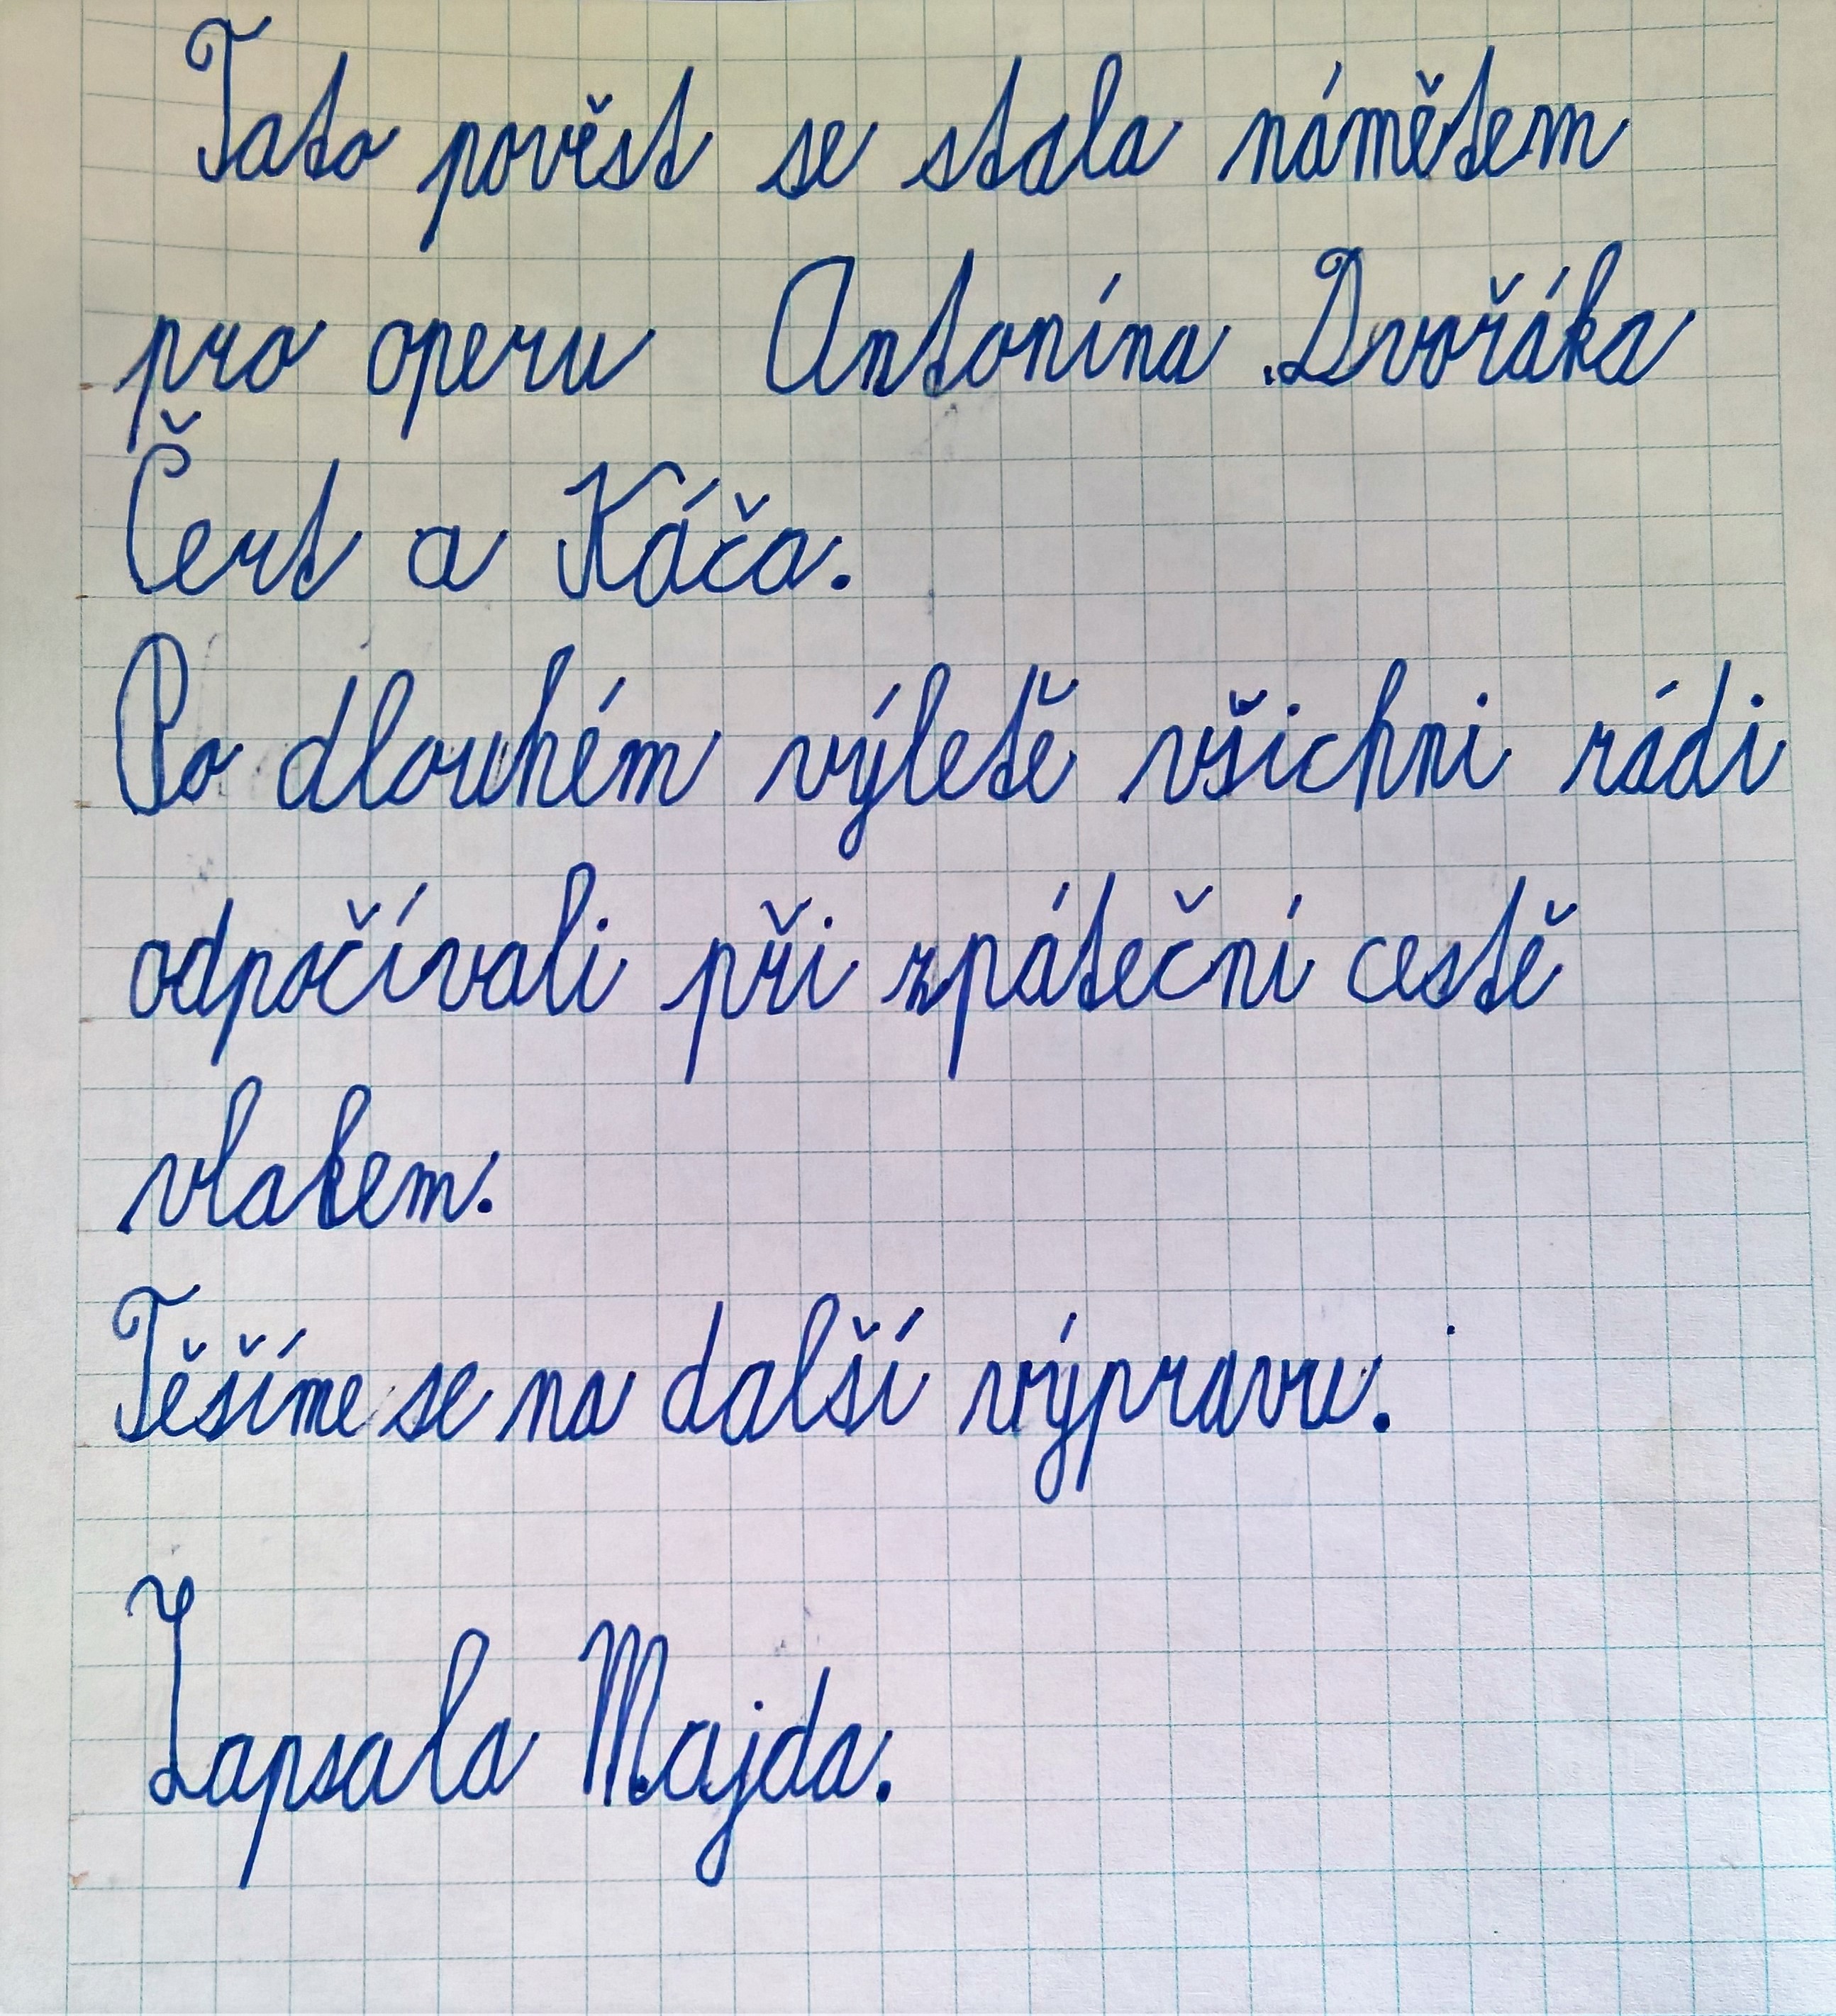 Tato pověst se stala námětem
pro operu Antonína Dvořáka
Čert a Káča.
Po dlouhém výletě všichni rádi
odpočívali při zpáteční cestě
vlakem.
Těšíme se na další výpravu.
Zapsala Majda.